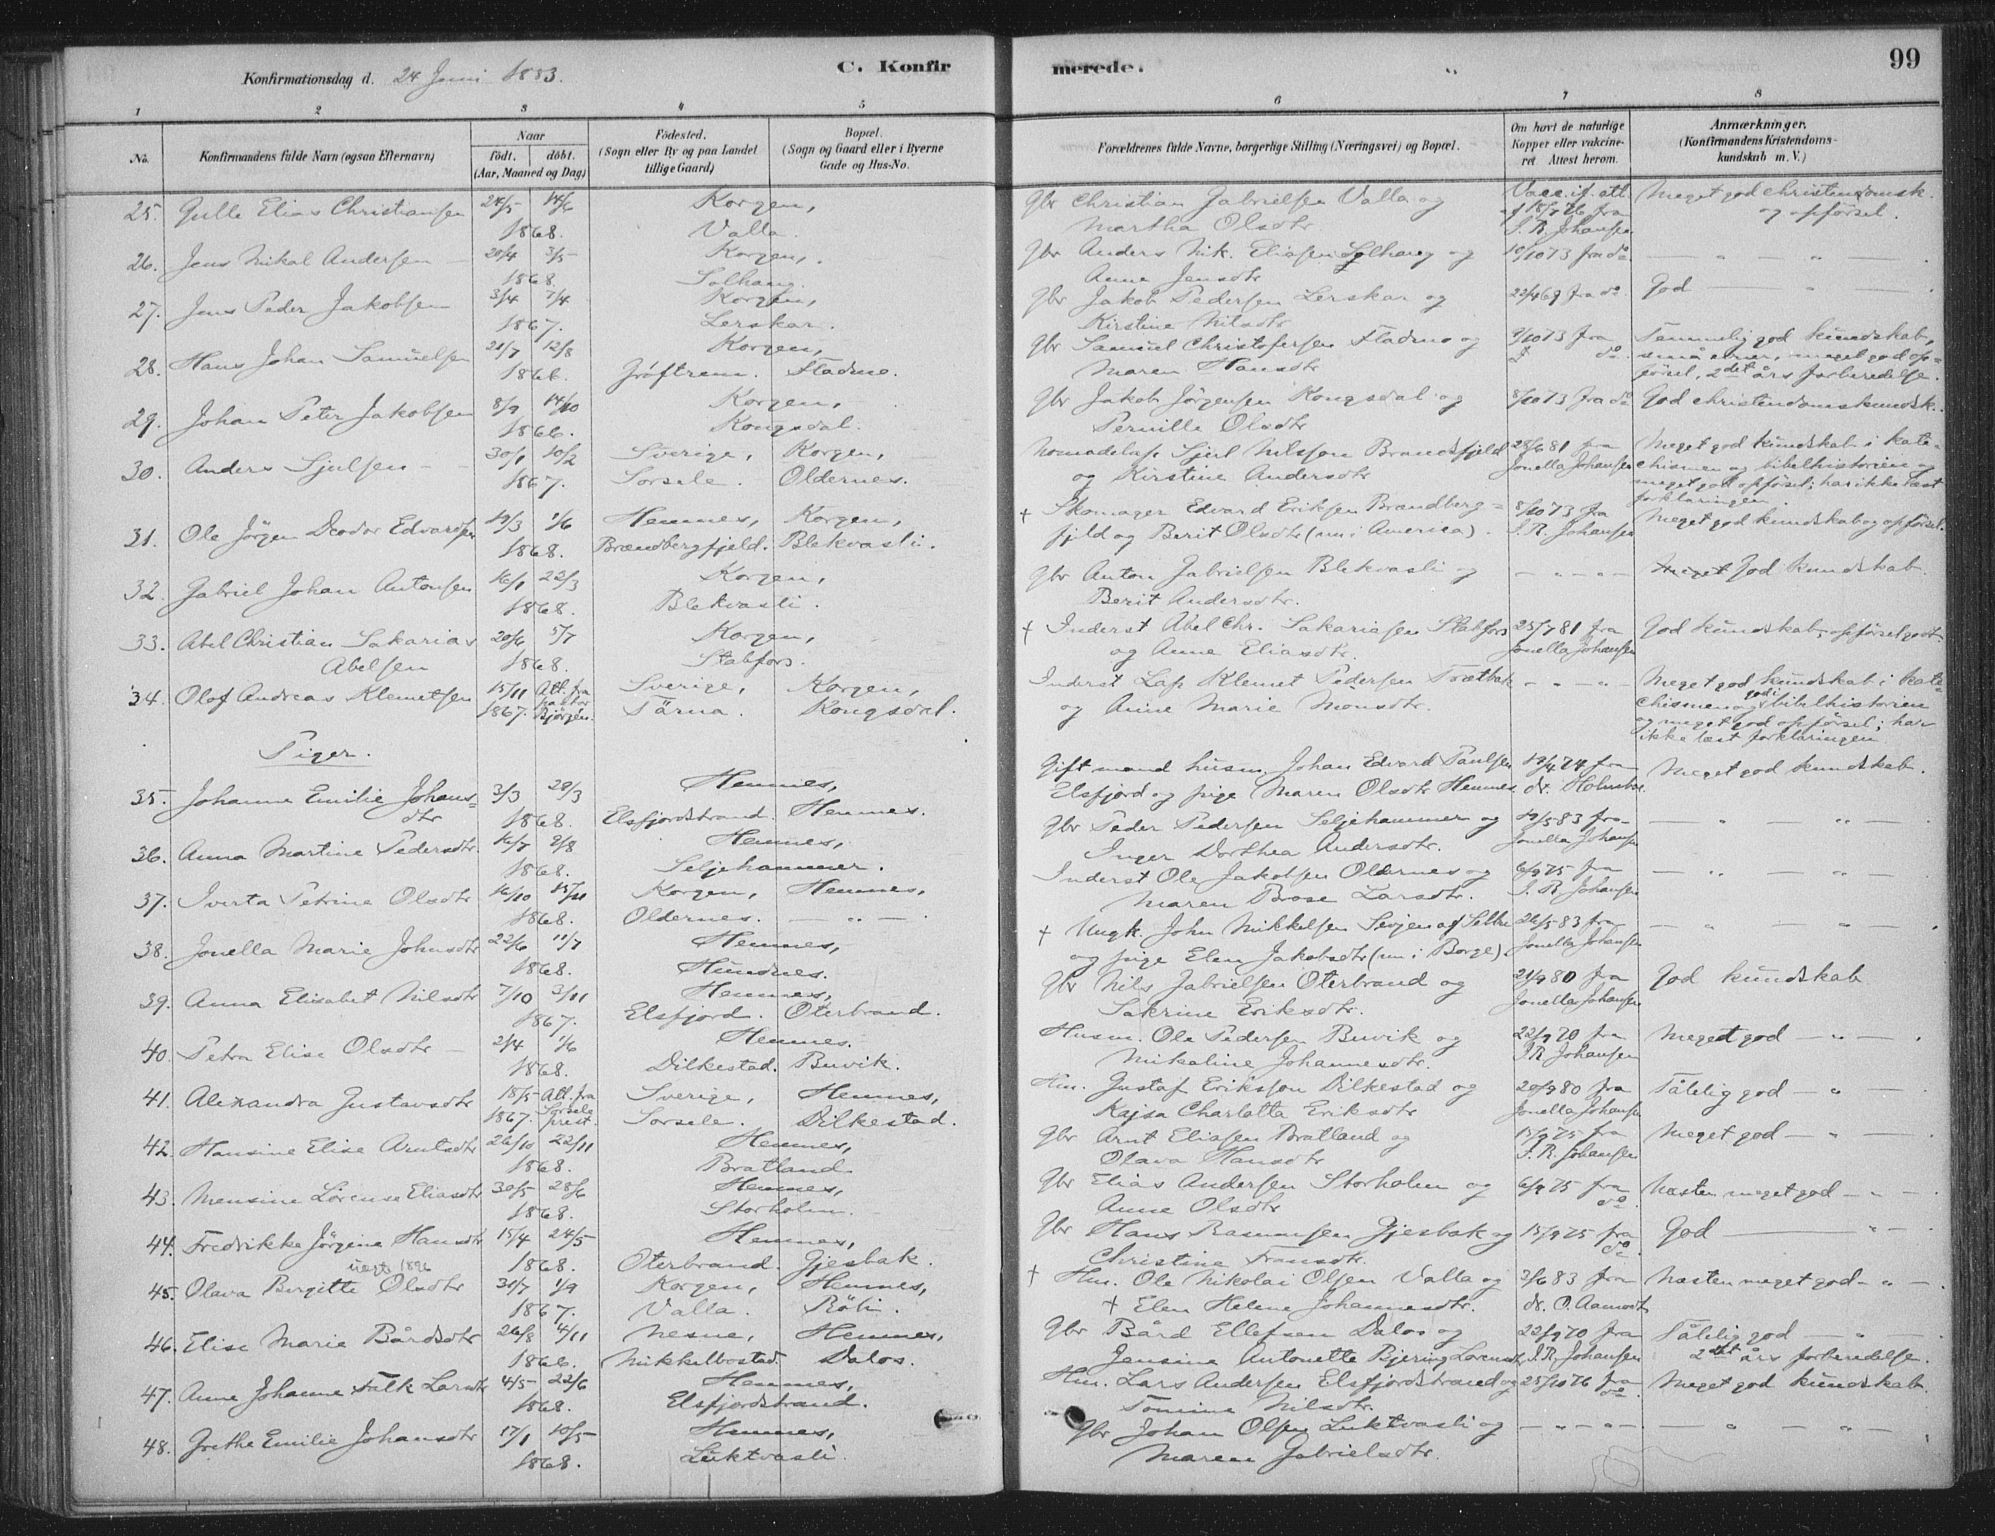 Konfirmationsdag d. 24 Juni 1883.
C. Konfir
merede.
99
1 2 3 4 5 6 7 8
No.
Konfirmandens fulde Navn (ogsaa Efternavn)
Naar
født. døbt.
(Aar, Maaned og Dag)
Fødested.
(Sogn eller By og paa Landet
tillige Gaard)
Bopæl.
(Sogn og Gaard eller i Byerne
Gade og Hus-No.
Forældrenes fulde Navne, borgerlige Stilling (Næringsvei) og Bopæl.
Om havt de naturlige
Kopper eller vakcine-
ret. Attest herom.
Anmærkninger.
(Konfirmandens Kristendoms-
kundskab m. V.)
25. Gulle Elias Christiansen 24/5 14/6 Korgen, Gbr Christian Gabrielsen Valla og Vacc. if. att. Meget god christendomsk.
1868. Valla. Martha Olsdtr. 18/7 76 fra og opførsel.
J. R. Johansen
26. Jens Nikal Andersen 20/4 3/5 Korgen, Gbr Anders Nik. Eliasen Solhaug og 10/10 73 fra do — " — " —
1868. Solhaug. Anne Jensdtr
27. Jens Peder Jakobsen 3/4 7/4 Korgen, Gbr Jakob Pedersen Lerskar og 22/4 69 fra do. God
1867. Lerskar. Kirstine Nilsdtr
28. Hans Johan Samuelsen 21/7 12/8 Korgen, Gbr Samuel Christofersen Fladmo og 9/10 73 fra Temmelig god kundskab,
1866. Grøftrem. Fladmo. Maren Hansdtr do. små evner, meget god op-
førsel, 2det års forberedelse.
29. Johan Peter Jakobsen 8/9 14/10 Korgen, Gbr Jakob Jørgensen Kongsdal og 8/10 73 fra do God christendomskundsk.
1866. Kongsdal. Pernille Olsdtr
30. Anders Sjulsen 30/1 10/2 Sverige, Korgen, Nomadelap Sjul Nilsson Brandsfjeld 28/6 81 fra Meget god kundskab i kate-
1867. Sorsele. Oldernes. og Kirstine Andersdtr Jonella Johansen chismen og bibelhistorien og
meget god opførsel; har ikke læst
forklaringen
31. Ole Jörgen Deodor Edvardsen 19/3 1/6 Hemnes, Korgen, + Skomager Edvard Eriksen Brandberg- 8/10 73 fra Meget god kundskab og opførsel.
1868. Brændbergfjeld. Blekvasli. fjeld og Berit Olsdtr (nu i America). J. R. Johansen
32. Gabriel Johan Antonsen 16/1 22/3 Korgen, Gbr Anton Gabrielsen Blekvasli og — " — " — Meget God kundskab.
1868. Blekvasli. Berit Andersdtr.
33. Abel Christian Sakarias 20/6 5/7 Korgen, + Inderst Abel Chr. Sakariasen Stabfors 25/7 81 fra God kundskab, opførsel godt
Abelsen 1868. Stabfors. og Anne Eliasdtr. Jonella Johansen
34. Olof Andreas Klemetsen 15/11 Att. fra Sverige, Korgen, Inderst Lap Klemet Pedersen Trætbak — " — " — Meget god kundskab i kate-
1867. pastor Bjørgén. Tärna. Kongsdal. og Anne Marie Monsdtr. chismen og god i bibelhistorien
og meget god opførsel; har
ikke læst forklaringen
Piger.
35. Johanne Emilie Johans- 3/3 29/3 Hemnes, Gift mand husm. Johan Edvard Paulsen 19/4 74 fra Meget god kundskab.
dtr 1868. Elsfjordstrand. Hemnes. Elsfjord og pige Maren Olsdtr Hemnes dr. Holmboe
36. Anna Martine Pedersdtr. 16/7 2/8 Hemnes, Gbr Peder Pedersen Seljehammer og 19/5 83 fra — " — " —
1868. Seljehammer. Inger Dorthea Andersdtr. Jonella Johansen
37. Iverta Petrine Olsdtr 16/10 15/11 Korgen, Hemnes, Inderst Ole Jakobsen Oldernes og 6/9 75 fra — " — " —
1868. Oldernes. — " — Maren Brose Larsdtr. J. R. Johansen
38. Jonella Marie Johnsdtr 22/6 11/7 Hemnes, + Ungk. John Mikkelsen Sevjen af Seltre 26/5 83 fra — " — " —
1868. Hundnes. og pige Elen Jakobsdtr (nu i Borge) Jonella Johansen
39. Anna Elisabet Nilsdtr 7/10 3/11 Hemnes, Gbr Nils Gabrielsen Oterbrand og 21/9 80 fra God kundskab
1867. Elsfjord. Oterbrand. Sakrine Eriksdtr. Jonella Johansen
40. Petra Elise Olsdtr 2/4 1/6 Hemnes. Husm. Ole Pedersen Buvik og 22/9 70 fra Meget god — " —
1868. Dilkestad. Buvik. Nikoline Johannesdtr. J. R. Johansen
41. Alexandra Gustavsdtr 18/5 Att. fra Sverige, Hemnes, Hm. Gustaf Eriksson Dilkestad og 20/9 80 fra Tålelig god — " —
1867. Sorsele prest. Sorsele. Dilkestad. Kajsa Charlotta Eriksdtr Jonella Johansen
42. Hansine Elise Arntsdtr 26/10 22/11 Hemnes, Gbr Arnt Eliasen Bratland og 15/9 75 fra Meget god — " —
1868. Bratland. Olava Hansdtr J. R. Johansen
43. Mensine Lorense Eliasdtr 30/5 28/6 Hemnes, Gbr Elias Andersen Storholm og 6/9 75 fra Næsten meget god — " —
1868. Storholm. Anne Olsdtr do
44. Fredrikke Jørgine Hansdtr 15/4 24/5 Hemnes, Gbr Hans Rasmussen Gjesbak og 15/9 75 fra God — " —
1868. Oterbrand. Gjesbak. Christine Fransdtr. do
1896
45. Olava Birgitte Olsdtr 31/7 1/9 Korgen, Hemnes, + Hm. Ole Nikolai Olsen Valla og 3/6 83 fra Næsten meget god — " —
1867. Valla. Röbi. + Elen Helene Johannesdtr. dr. O. Aamodt
46. Elise Marie Bårdsdtr 26/8 4/11 Nesne, Hemnes, Gbr Bård Ellefsen Dalos og 22/9 70 fra Tålelig god — " —
1866. Mikkelbostad. Dalos. Jensine Antonette Bjering Lorensdtr J. R. Johansen 2det års forberedelse.
47. Anne Johanne Falk Larsdtr 4/5 22/6 Hemnes, Hm. Lars Andersen Elsfjordstrand og 25/10 76 fra Meget god kundskab.
1868. Elsfjordstrand. Tomine Nilsdtr. do
48. Grethe Emilie Johansdtr 17/1 10/5 Hemnes, Gbr Johan Olsen Luktvasli og — " — " — " — " —
1868. Luktvasli. Maren Gabrielsdtr.